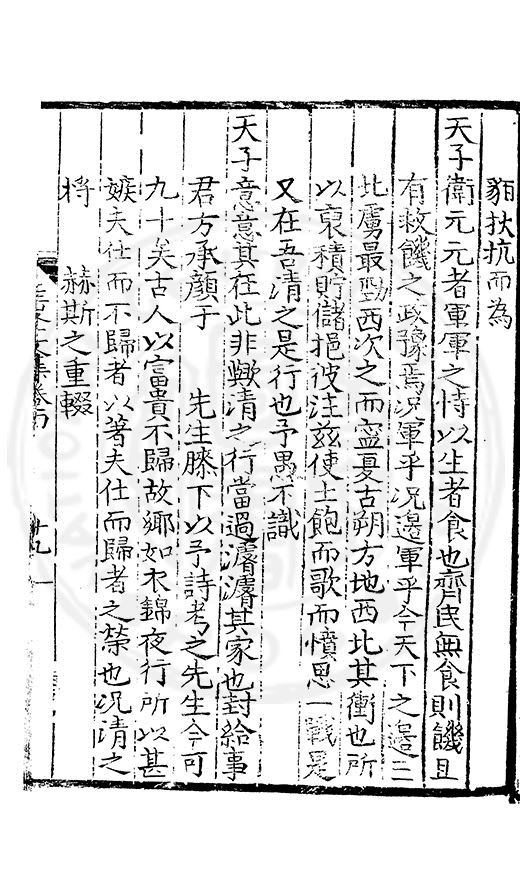 貊狄抗而為
天子衛元元者軍軍之恃以生者食也齊民無食則饑且
有救饑之政豫焉况軍乎况邊軍乎今天下之邊二
北虜最勁西次之而寧夏古朔方地西北其衝也所
以裒積貯儲挹彼注兹使士飽而歌而憤思一戰是
又在吾清之是行也予愚不識
天子意意其在此非歟清之行當過濬濬其家也封給事
君方承顔于　先生膝下以予詩考之先生今可
九十矣古人以富貴不歸故鄉如衣錦夜行所以甚
嫉夫仕而不歸者以著夫仕而歸者之榮也况清之
將　赫斯之重輟